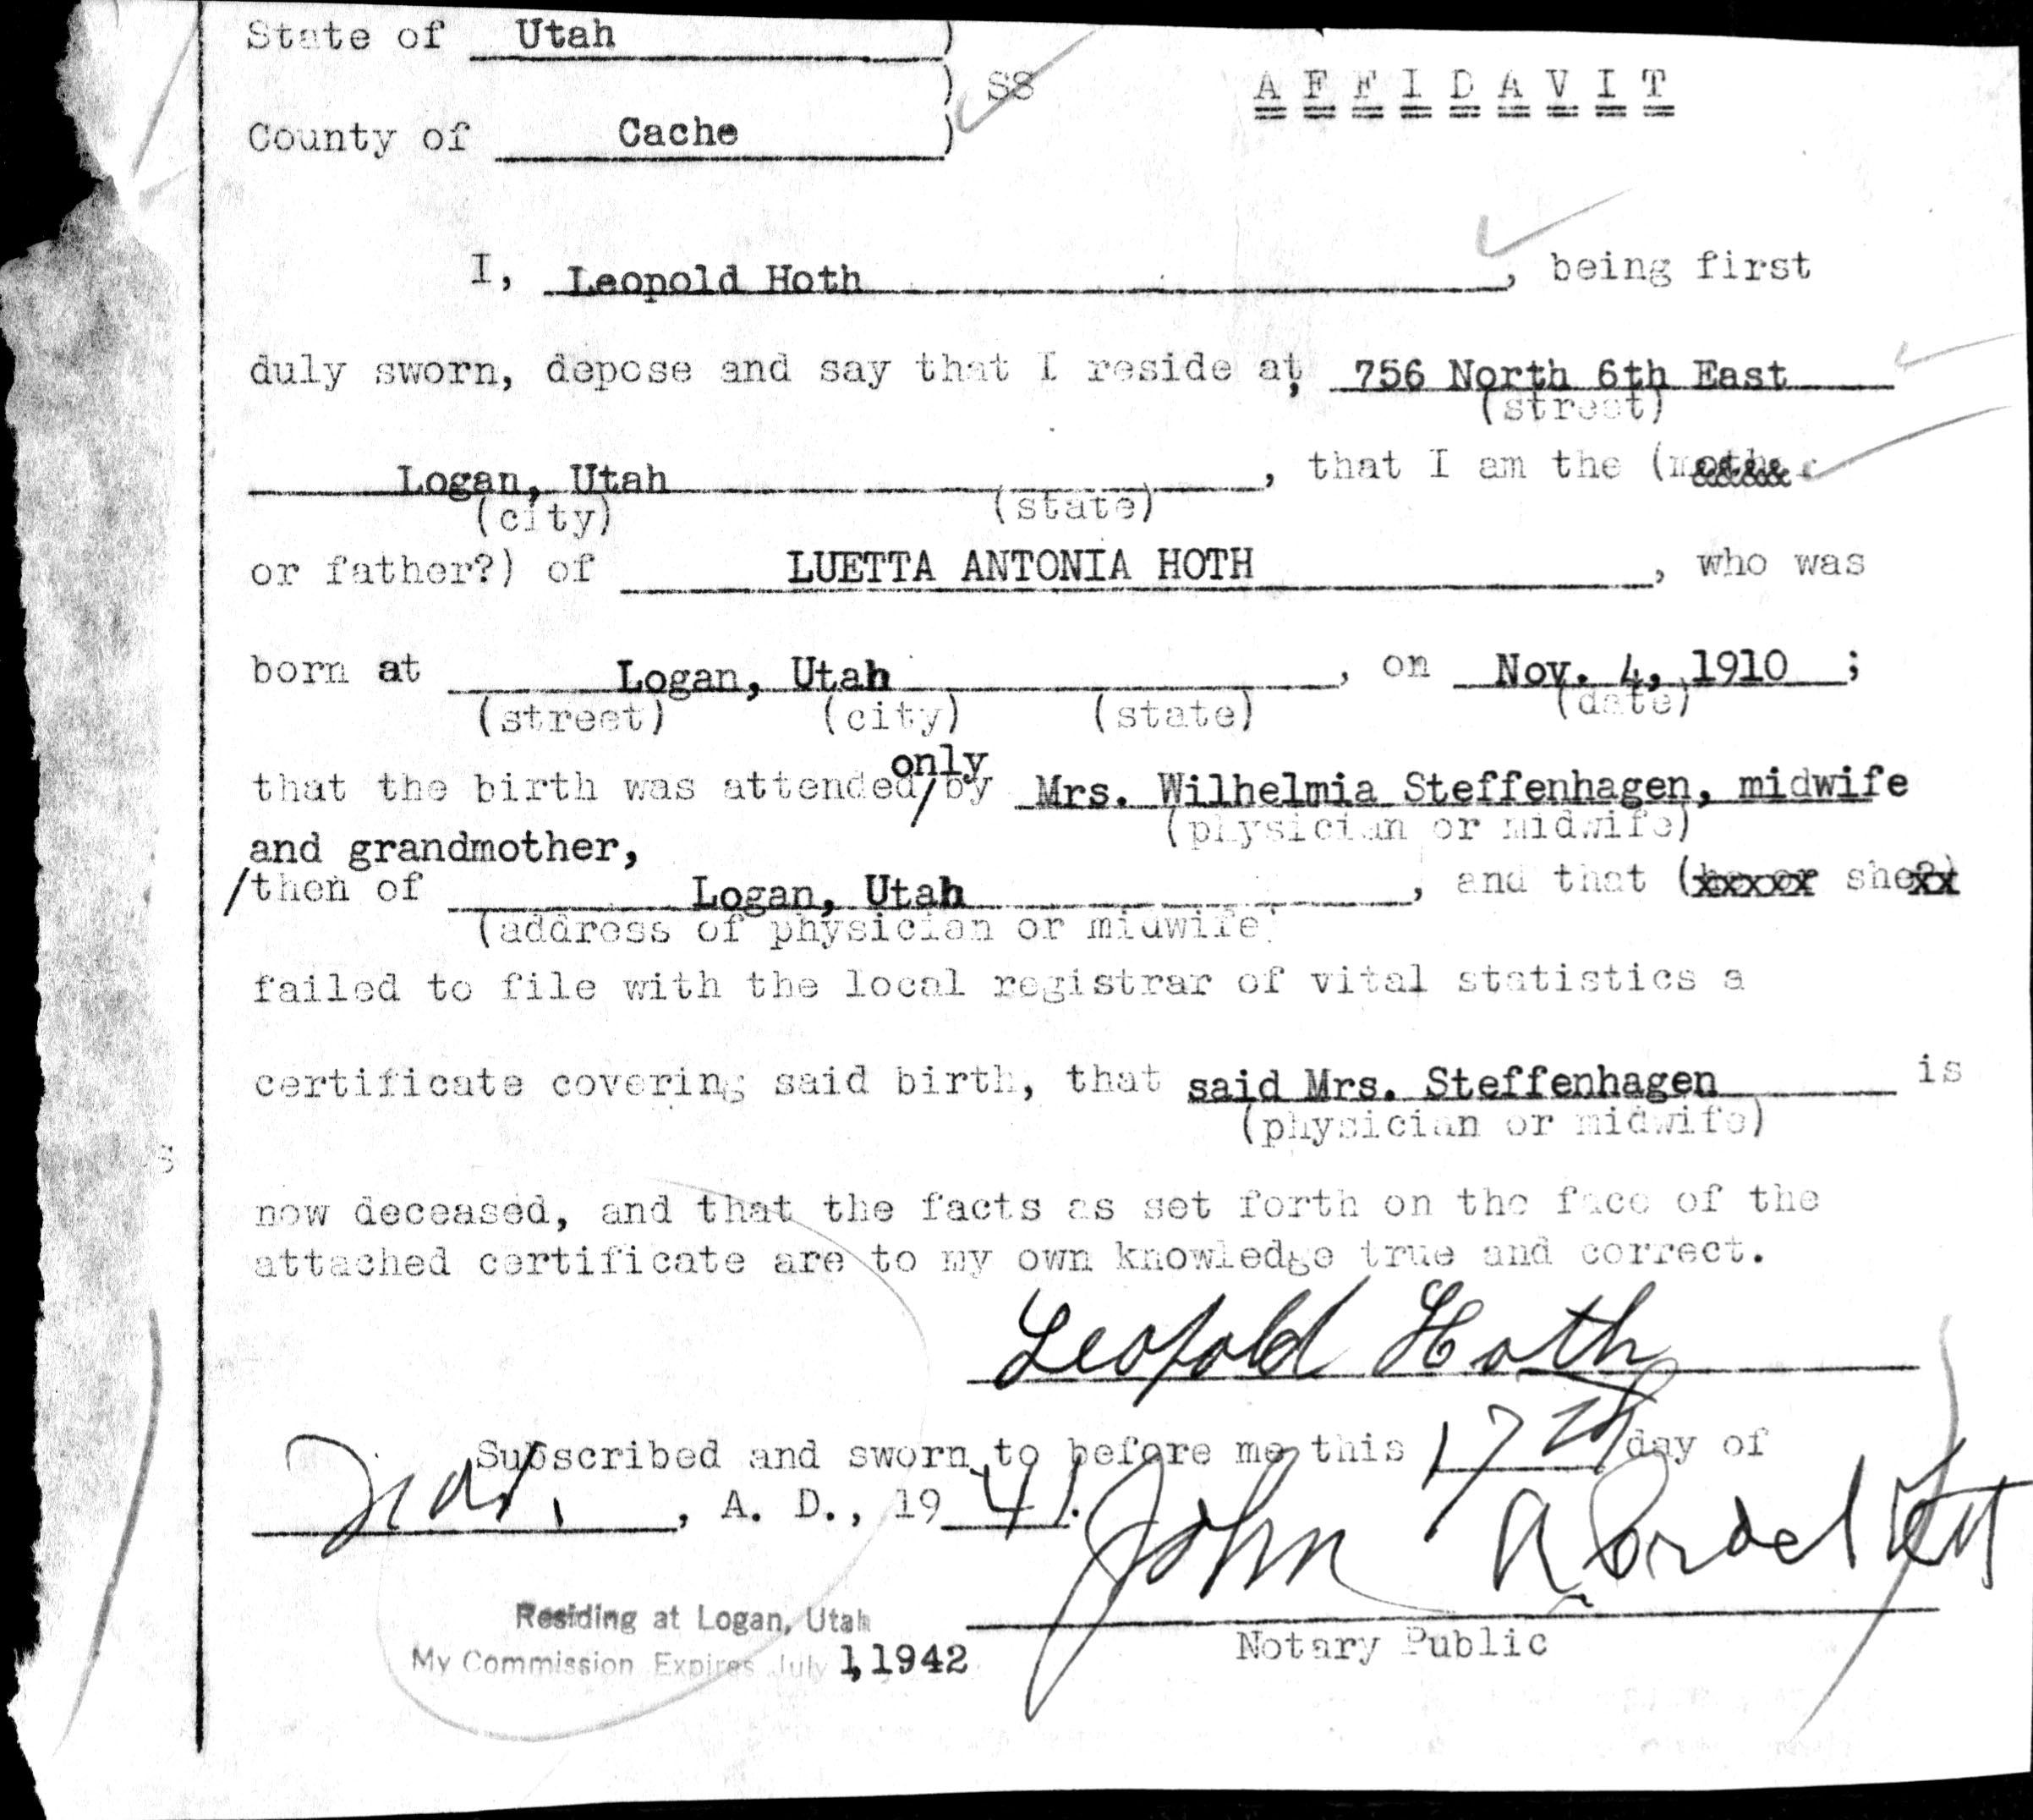 State of Utah )
) SS A F F I D A V I T
County of Cache )
I, Leopold Hoth, being first
duly sworn, depose and say that I reside at, 756 North 6th East
(street)
Logan, Utah, that I am the (mother
(city) (state)
or father?) of LUETTA ANTONIA HOTH, who was
born at Logan, Utah, on Nov. 4, 1910;
(street) (city) (state) (date)
only
that the birth was attended/by Mrs. Wilhelmia Steffenhagen, midwife
(physician or midwife)
and grandmother,
/then of Logan, Utah, and that (he or she?)
(address of physician or midwife)
failed to file with the local registrar of vital statistics a
certificate covering said birth, that said Mrs. Steffenhagen is
(physician or midwife)
s
now deceased, and that the facts as set forth on the face of the
attached certificate are to my own knowledge true and correct.
Leopold Hoth
Subscribed and sworn to before me this 17th day of
, A. D., 1941.
John A
Residing at Logan, Utah
My Commission Expires July 1, 1942
Notary Public